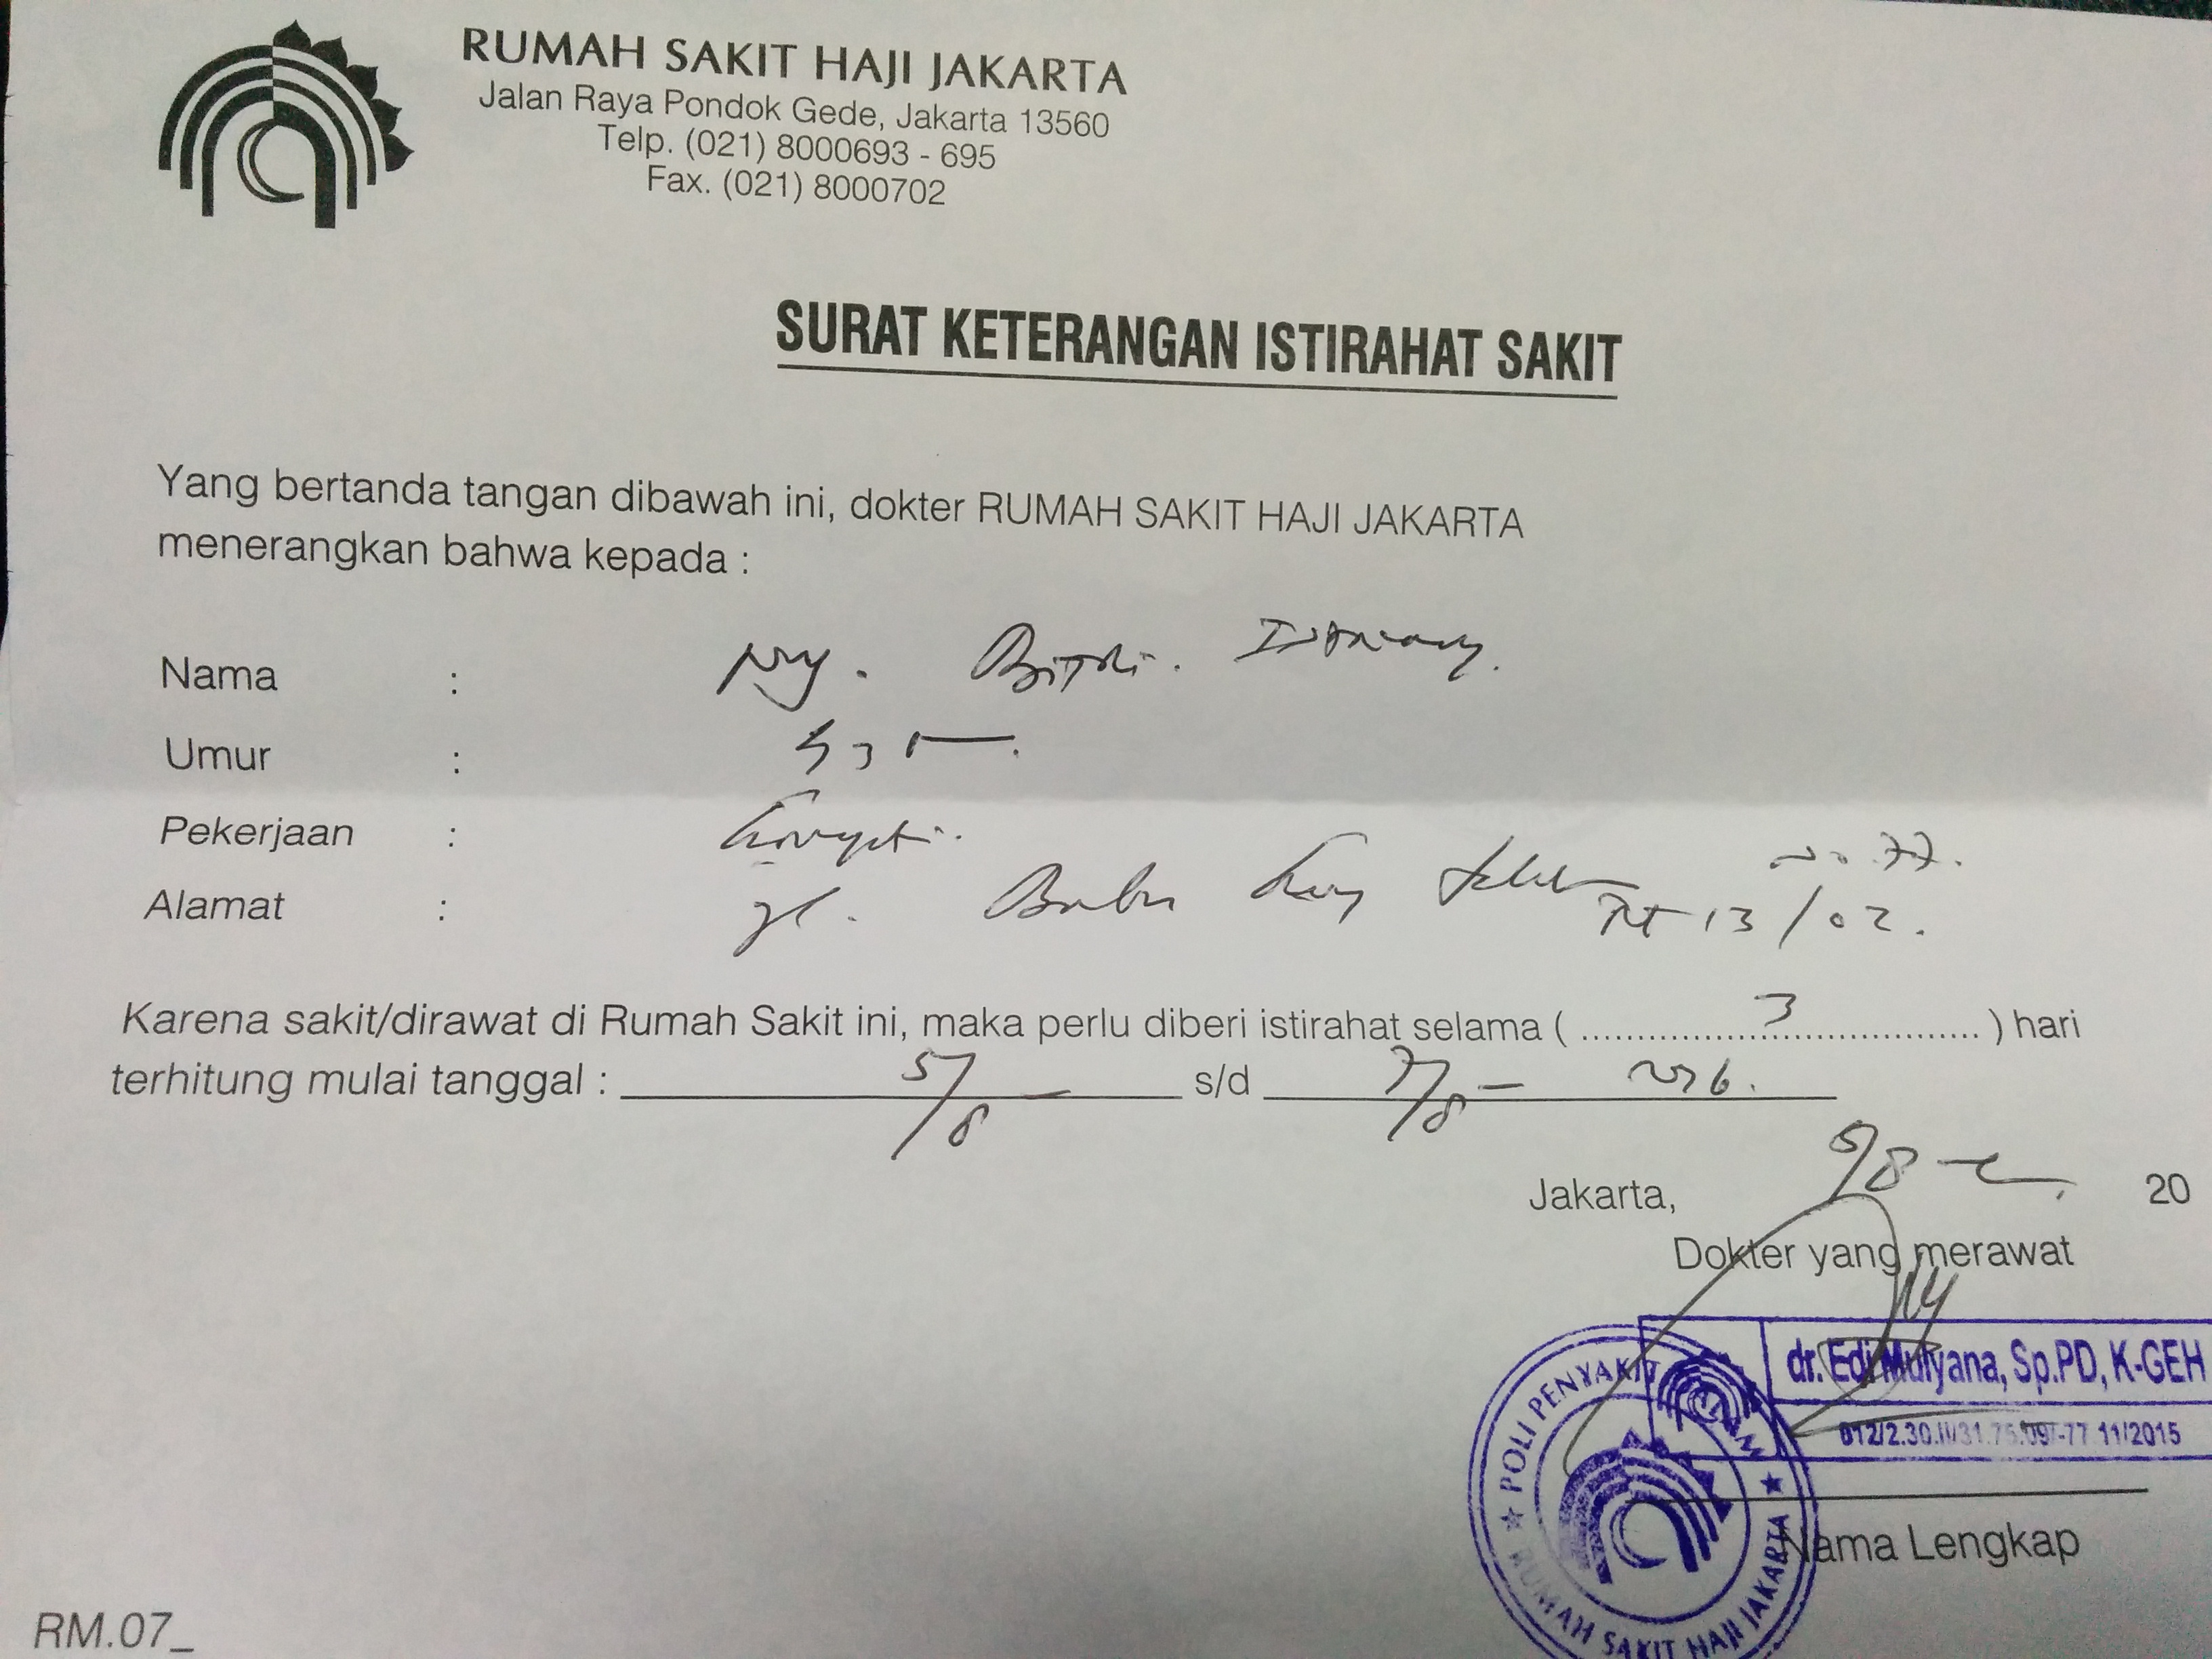 RUMAH SAKIT HAJI JAKARTA
Jalan Raya Pondok Gede, Jakarta 13560
Telp. (021) 8000693 - 695
Fax. (021) 8000702
SURAT KETERANGAN ISTIRAHAT SAKIT
Yang bertanda tangan dibawah ini, dokter RUMAH SAKIT HAJI JAKARTA
menerangkan bahwa kepada :
Nama : Ny.
Umur :
Pekerjaan :
Alamat : Jl. No 77.
RT 13/02.
Karena sakit/dirawat di Rumah Sakit ini, maka perlu diberi istirahat selama ( 3 ) hari
terhitung mulai tanggal : 5/8 s/d 7/8 - 2016.
Jakarta, 5/8 20
Dokter yang merawat
dr. Edi Mulyana, Sp.PD, K-GEH
POLI PENYAKIT DALAM
RUMAH SAKIT HAJI JAKARTA
Nama Lengkap
RM.07_